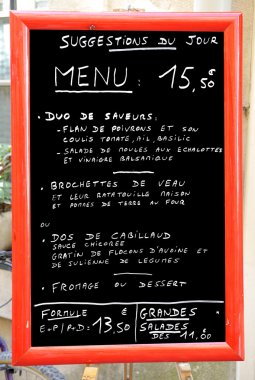 SUGGESTIONS DU JOUR
MENU : 15,50€
• DUO DE SAVEURS :
- FLAN DE POIVRONS ET SON
COULIS TOMATE, AIL, BASILIC
- SALADE DE MOULES AUX ECHALOTTES
ET VINAIGRE BALSAMIQUE
• BROCHETTES DE VEAU
ET LEUR RATATOUILLE MAISON
ET POMMES DE TERRE AU FOUR
OU
• DOS DE CABILLAUD
SAUCE CHICOREE
GRATIN DE FLOCONS D'AVOINE ET
DE JULIENNE DE LEGUMES
• FROMAGE OU DESSERT
FORMULE €
E+P/P+D : 13,50
GRANDES
SALADES
DES 11,00€